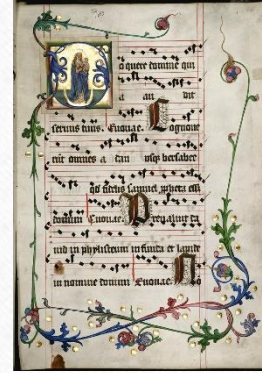 Loquere domine qui
a au dit
seruus tuus. Euouae. Cognoue
rūt omnes a dan usqꝫ bersabee
qđ fidelis samuel ꝓpheta esset
domini Euouae. Preualuit da
uid in phylisteum in funda et lapide
in nomine domini Euouae. No